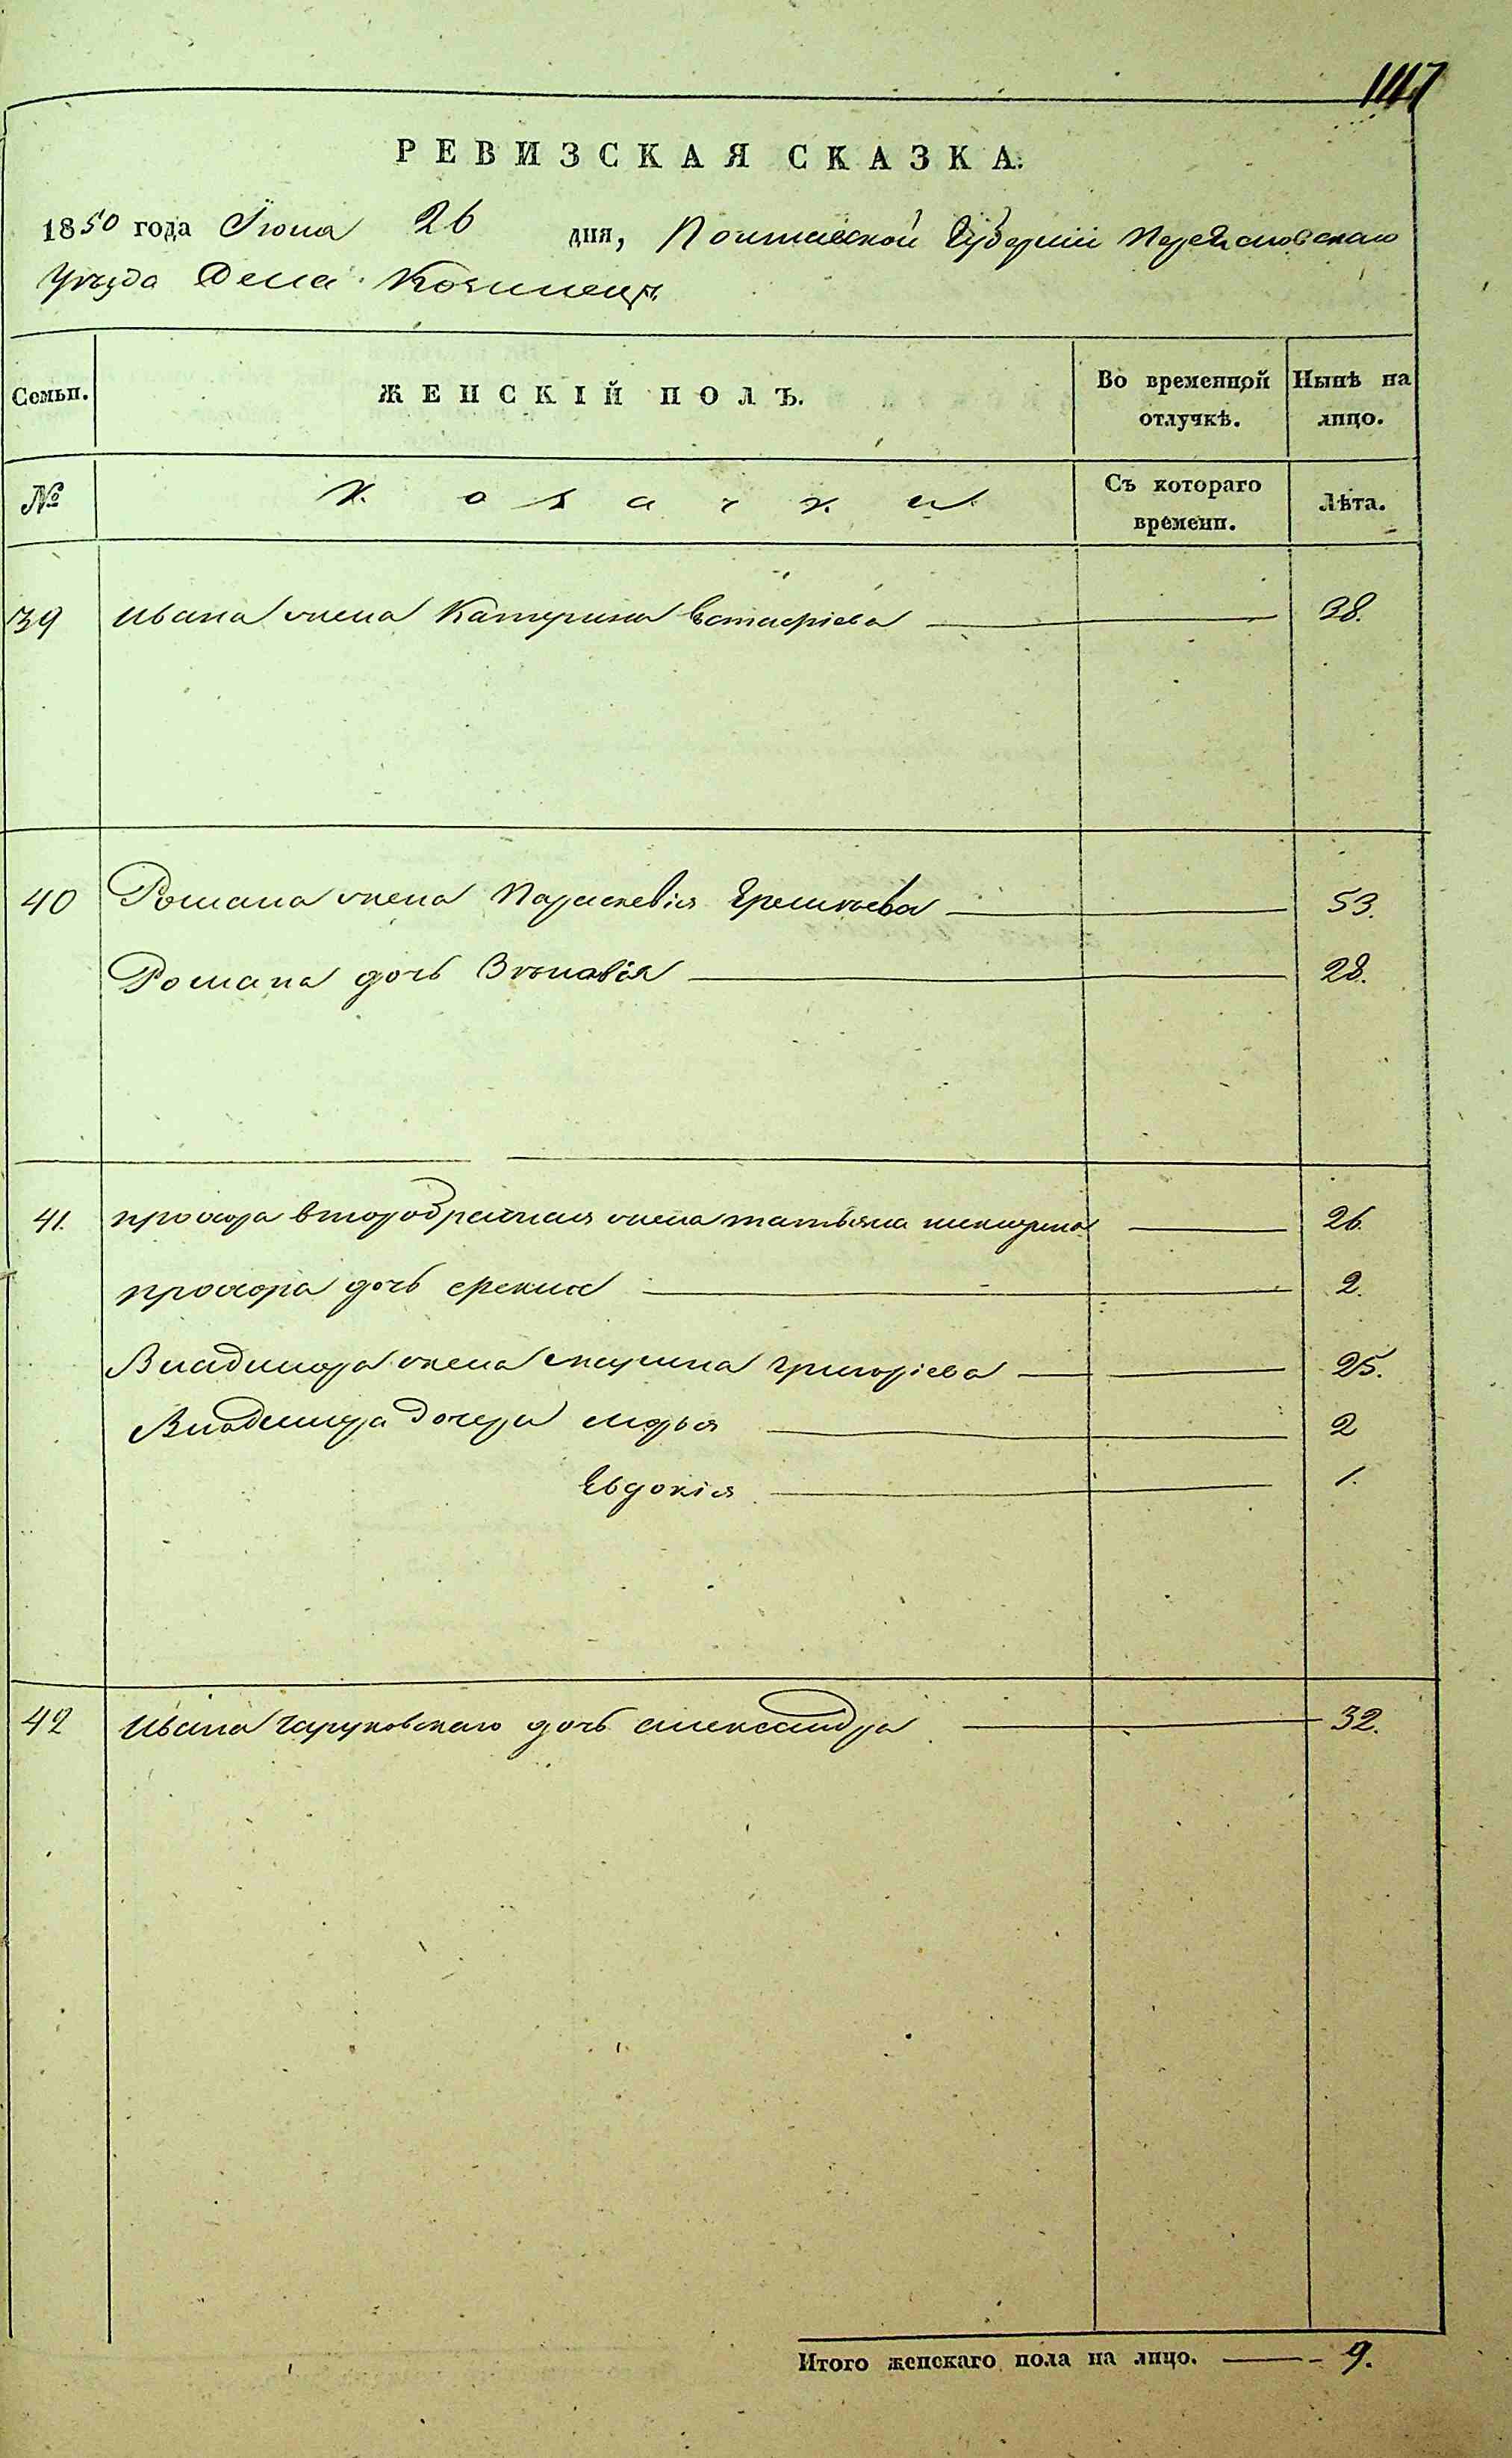 1117
РЕВИЗСКАЯ СКАЗКА.
1850 года Іюна 26 дня, Полтавской Губерніи Переяславскаго
Уѣзда Села
Семьи. ЖЕНСКІЙ ПОЛЪ. Во временной отлучкѣ. Нынѣ на лицо.
№ Козачки Съ котораго времени. Лѣта.
39 Ивана жена Катерина Евстафіева 38.
40 Романа жена Параскевія 53.
Романа дочь Зѣновія 28.
41. прохора второбрачная жена татьяна 26.
прохора дочь 2.
Владимера жена марина григоріева 25.
Владимера дочери марья 2
Евдокія 1.
42 Ивана дочь александра 32.
Итого женскаго пола на лицо. 9.